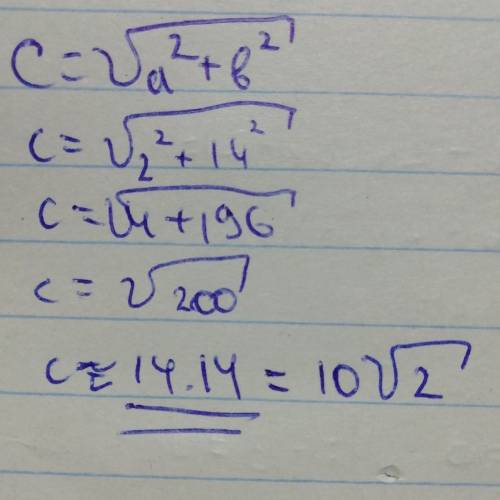 C = √a² + b²
c = √2² + 14²
c = √4 + 196
c = √200
c ≈ 14.14 = 10√2